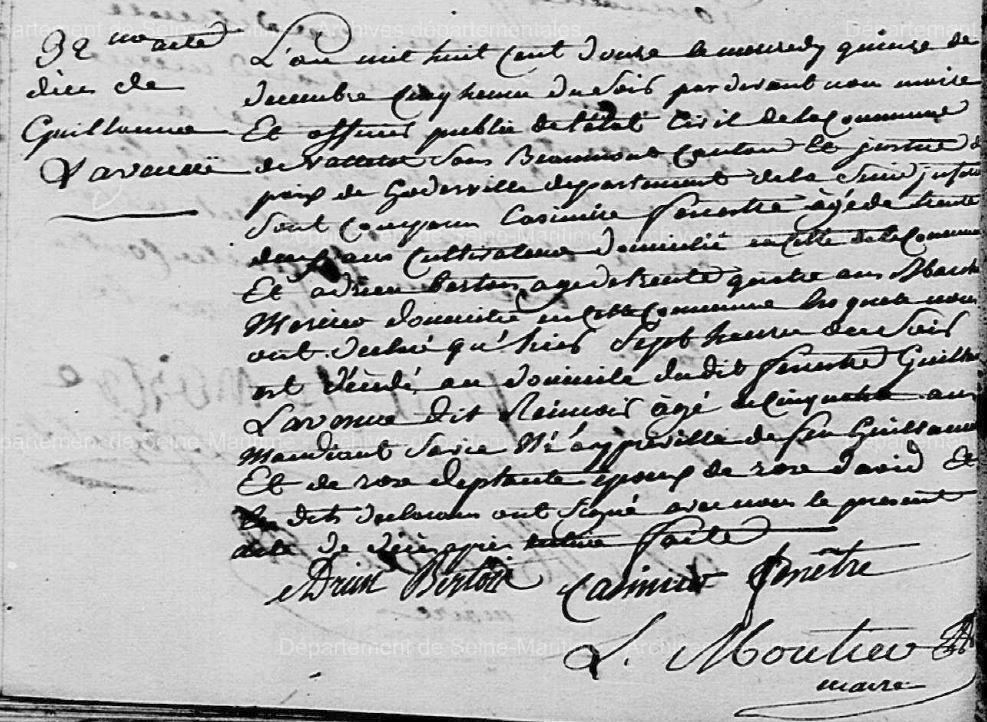 32me acte
deces de
Guillaume
Lavenue
L'an mil huit cent douze le mercredy quinze de
decembre cinq heures du soir par devant nous maire
Et officier public de l'état civil de la commune
de vattetot sous Beaumont canton Et justice de
paix de Goderville departement de la Seine inferieure
sont comparus Casimire fenestre âgé de trente
deux ans cultivateur domicilié en cette dite commune
Et adrien berton agé de trente quatre ans
domicilié en cette commune lesquels nous
ont declaré qu'hier sept heures du soir
est décédé au domicile dudit fenestre Guillaume
Lavenue dit âgé de cinquante ans
Mandiant de feu Guillaume
Et de rose deptante epoux de rose david Et
les dits declarans ont signé avec nous le present
acte de décès apres lecture faite
Adrien Berton Casimir fenêtre
L. Moutier
maire
Département de Seine-Maritime - Archives départementales